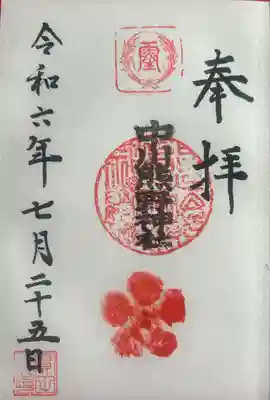 奉拝
中川熊野神社
令和六年七月二十五日